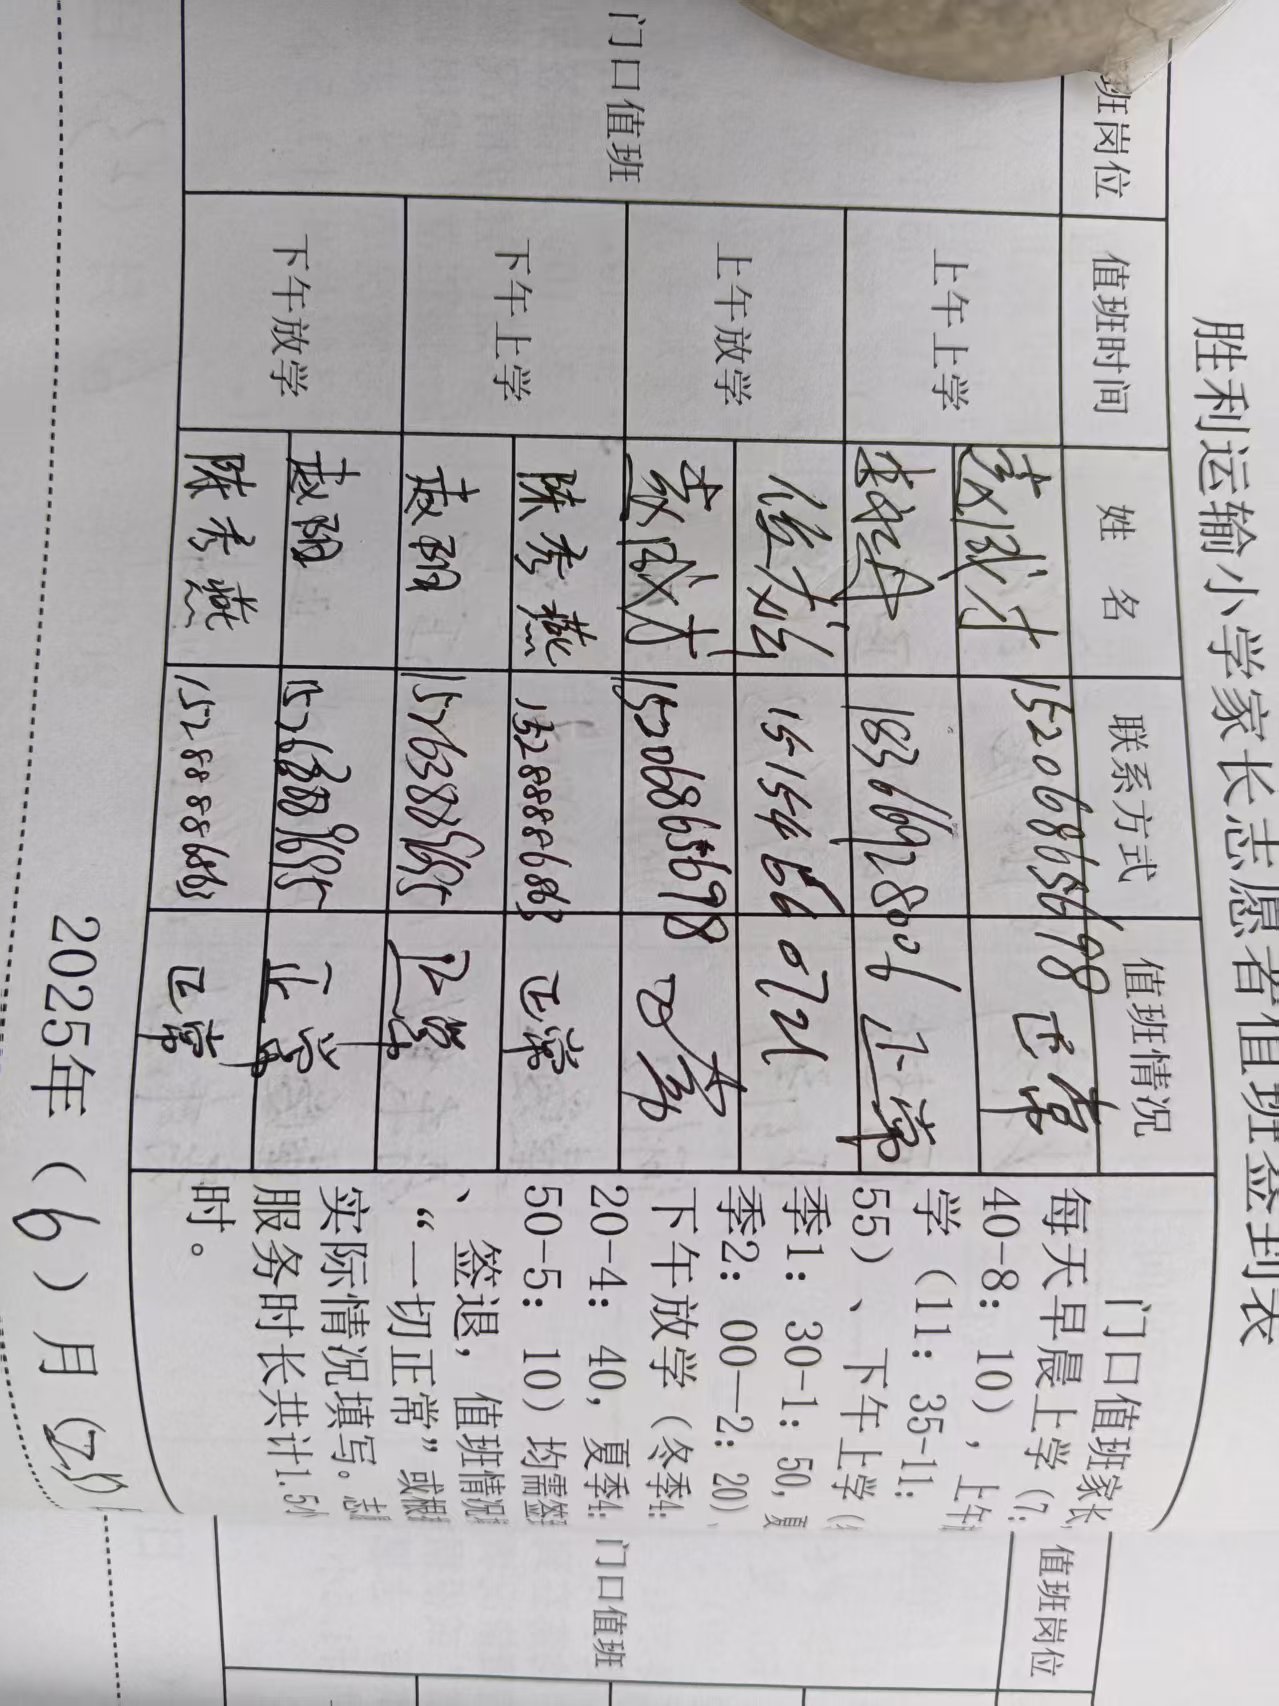 胜利运输小学家长志愿者值班签到表
班岗位 值班时间 姓 名 联系方式 值班情况
门口值班
上午上学
15206865698 正常
18366928006 正常
上午放学
15154660721
15206865698 正常
下午上学
陈秀燕 15288886863 正常
赵阳 15763889695 正常
下午放学
赵阳 正常
陈秀燕 15288886863 正常
门口值班家长
每天早晨上学（7:
40-8：10），上午
学（11：35-11:
55）、下午上学（
季1：30-1：50，夏
季2：00—2：20）、
下午放学（冬季4:
20-4：40，夏季4:
50-5：10）均需签
、签退，值班情况
“一切正常”或
实际情况填写。志
服务时长共计1.5小
时。
2025年（6）月（
值班岗位
门口值班